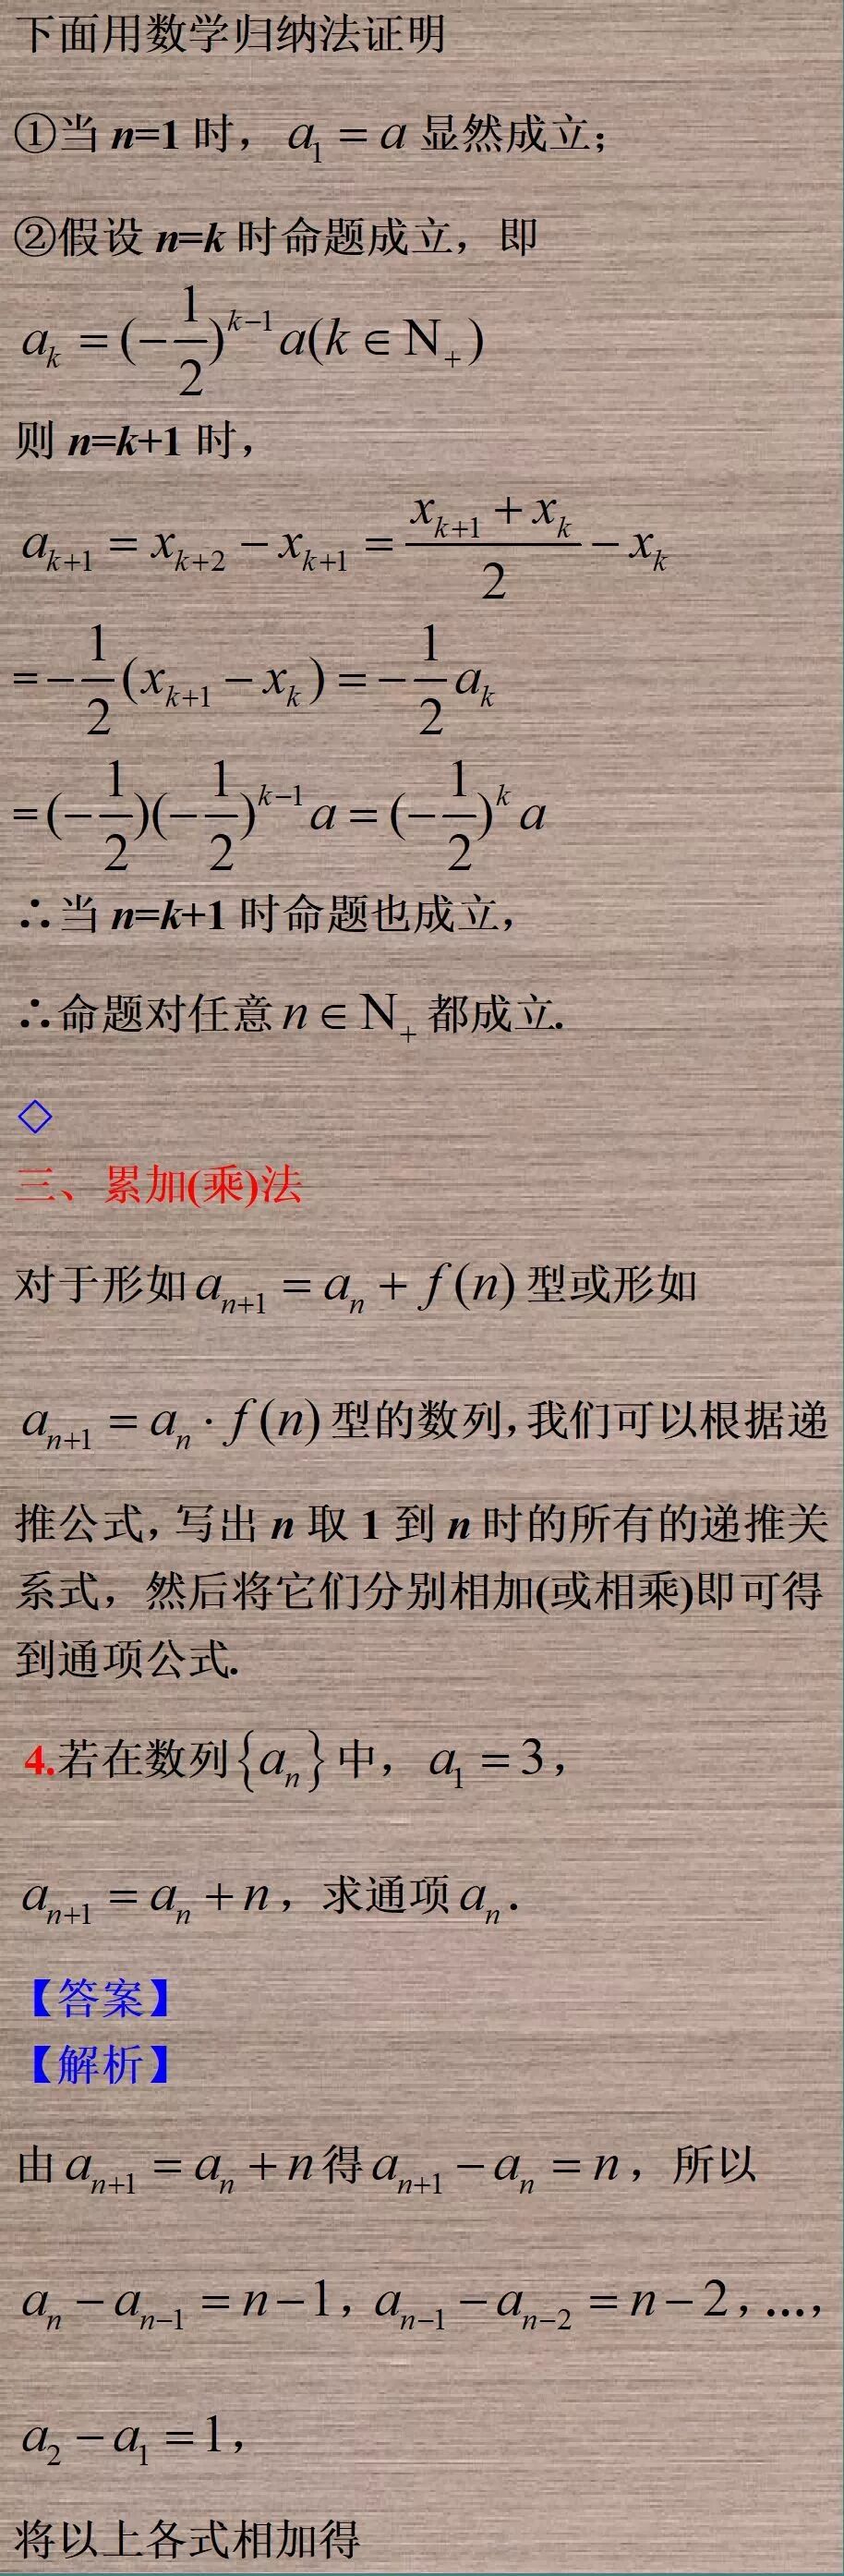 下面用数学归纳法证明
①当 n=1 时，a₁ = a 显然成立；
②假设 n=k 时命题成立，即
a_k = (-1/2)^{k-1} a(k ∈ N₊)
则 n=k+1 时，
a_{k+1} = x_{k+2} - x_{k+1} = (x_{k+1} + x_k)/2 - x_k
= -1/2 (x_{k+1} - x_k) = -1/2 a_k
= (-1/2)(-1/2)^{k-1} a = (-1/2)^k a
∴当 n=k+1 时命题也成立，
∴命题对任意 n ∈ N₊ 都成立.
◇
三、累加(乘)法
对于形如 a_{n+1} = a_n + f(n) 型或形如
a_{n+1} = a_n · f(n) 型的数列，我们可以根据递
推公式，写出 n 取 1 到 n 时的所有的递推关
系式，然后将它们分别相加(或相乘)即可得
到通项公式.
4.若在数列{a_n}中，a₁ = 3，
a_{n+1} = a_n + n，求通项 a_n.
【答案】
【解析】
由 a_{n+1} = a_n + n 得 a_{n+1} - a_n = n，所以
a_n - a_{n-1} = n - 1，a_{n-1} - a_{n-2} = n - 2，…，
a₂ - a₁ = 1，
将以上各式相加得